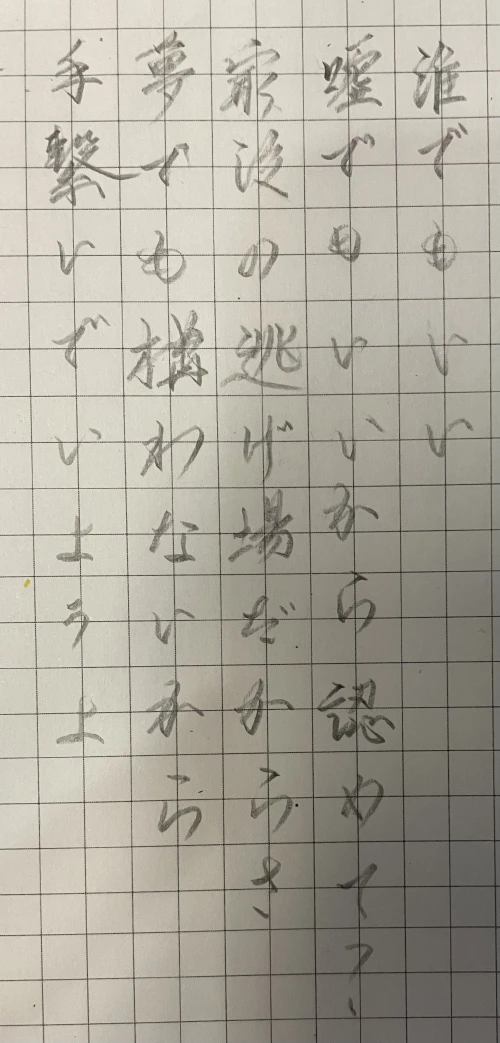 誰でもいい
嘘でもいいから認めて？
最後の逃げ場だからさ
夢でも構わないから
手繋いでいようよ